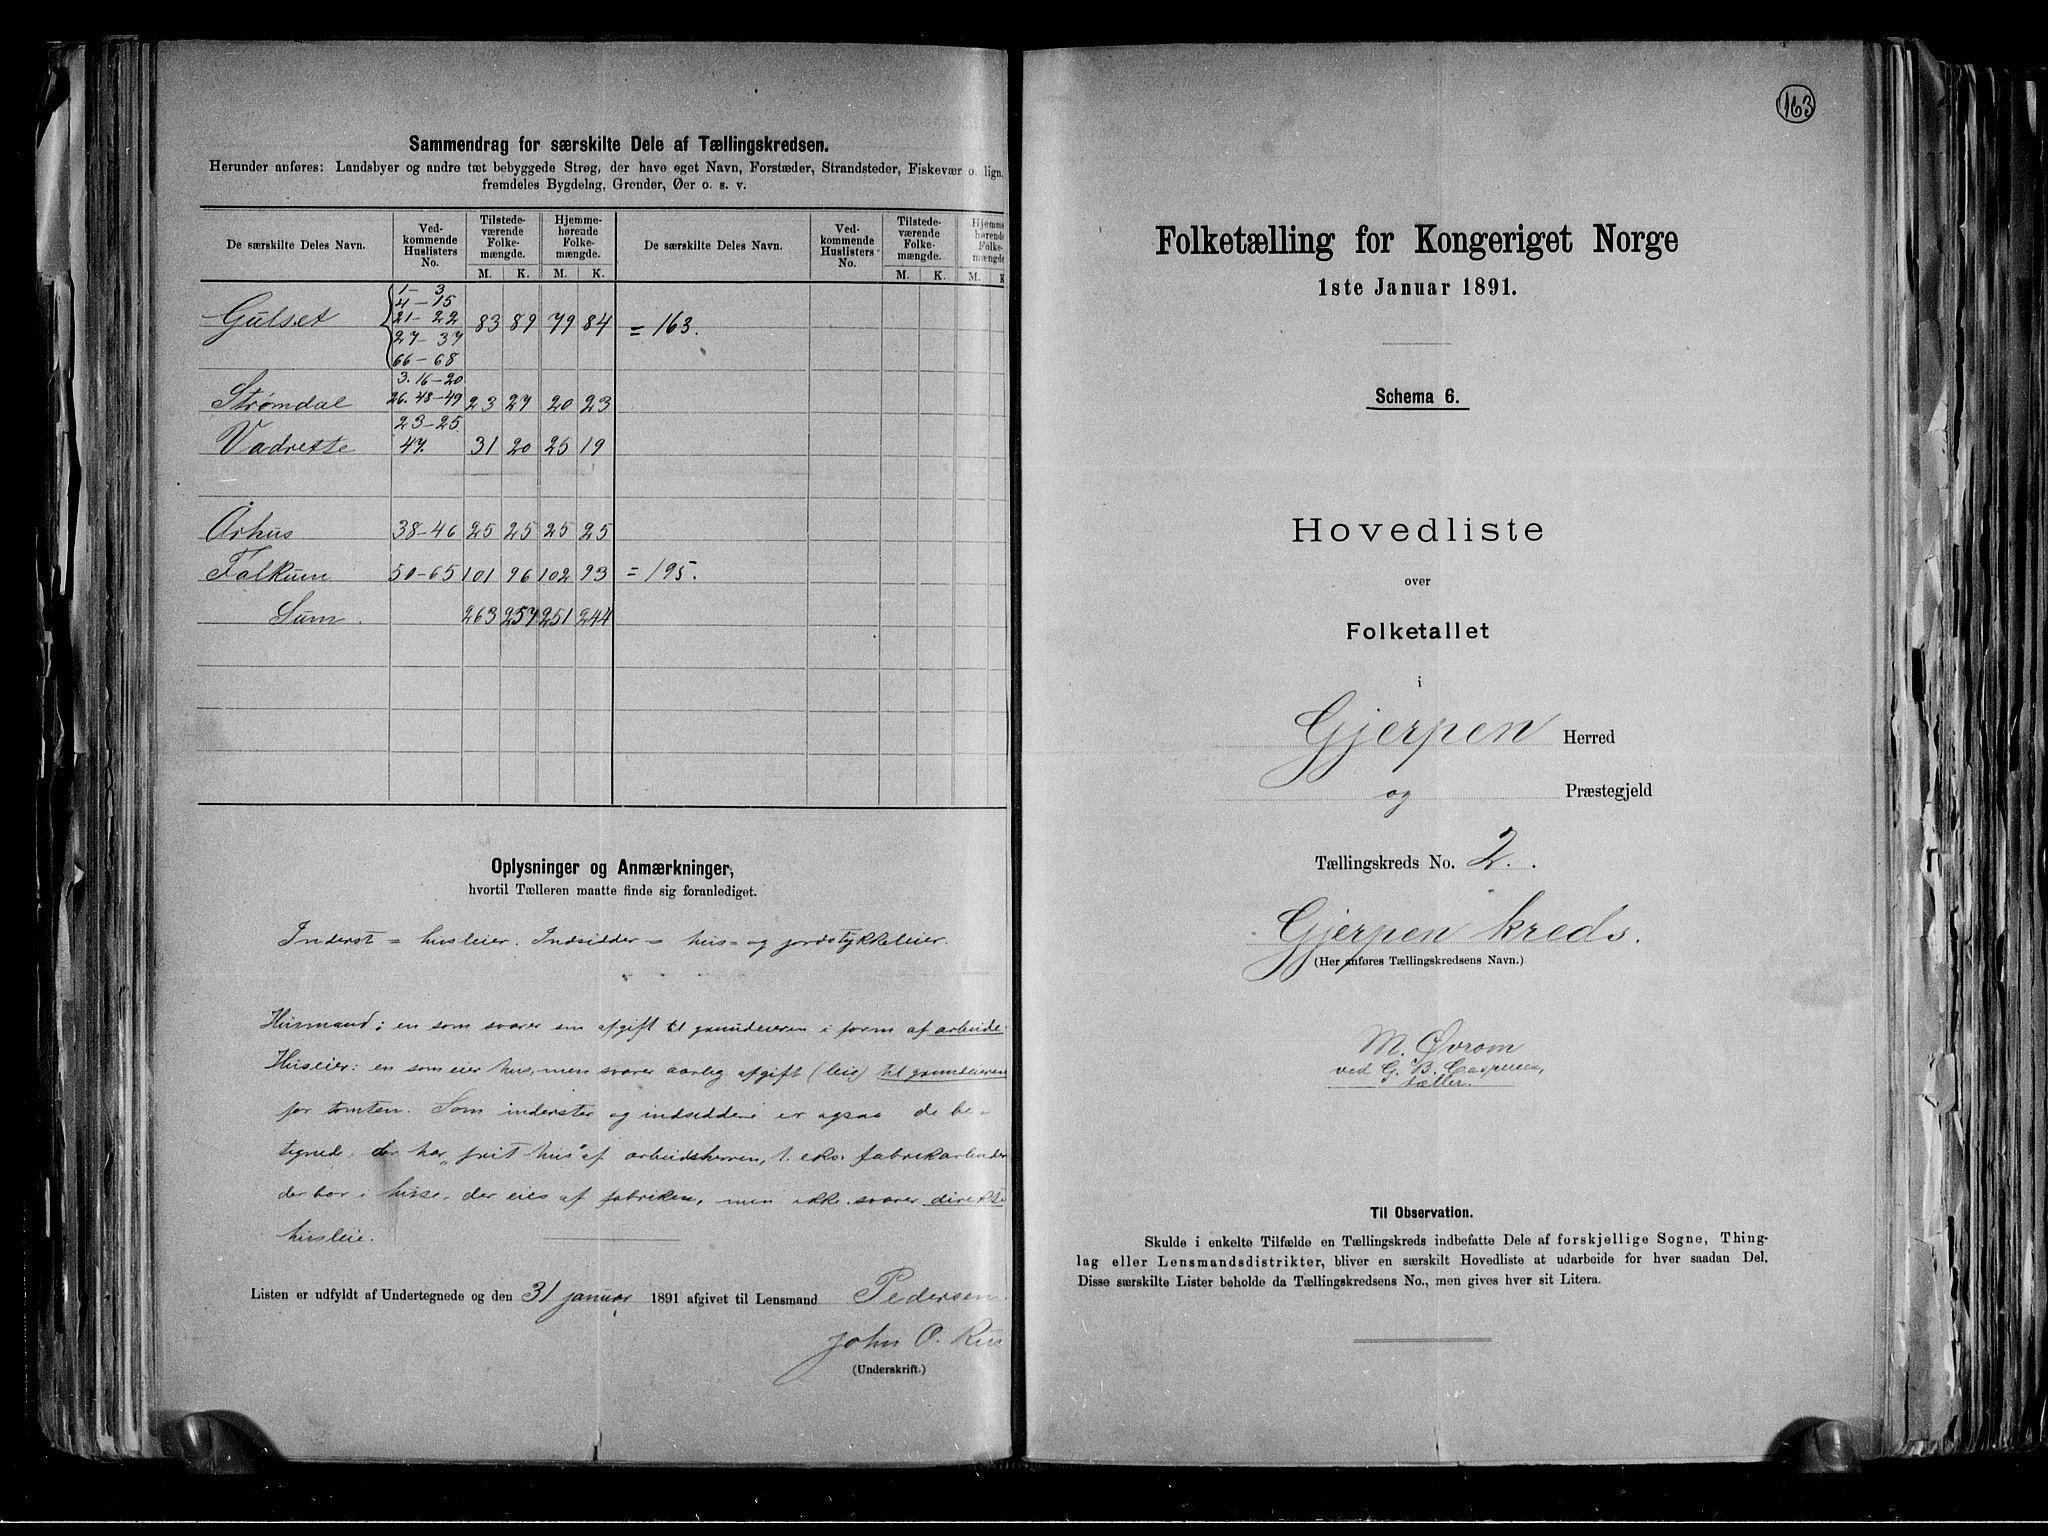 Sammendrag for særskilte Dele af Tællingskredsen.
Herunder anføres: Landsbyer og andre tæt bebyggede Strøg, der have eget Navn, Forstæder, Strandsteder, Fiskevær o. lign.
fremdeles Bygdelag, Grender, Øer o. s. v.
De særskilte Deles Navn. Ved-kommende Huslisters No. Tilstede-værende Folke-mængde. Hjemme-hørende Folke-mængde. De særskilte Deles Navn. Ved-kommende Huslisters No. Tilstede-værende Folke-mængde. Hjemme-hørende Folke-mængde
M. K. M. K. M. K. M. K
1– 3
4–15
Gulset 21–22 83 89 79 84 = 163.
27–37
66–68
3. 16–20
Strømdal 26. 48–49 23 27 20 23
23–25
Vadrette 47. 31 20 25 19
Århus 38–46 25 25 25 25
Falkum 50–65 101 96 102 93 = 195.
Sum. 263 257 251 244
Oplysninger og Anmærkninger,
hvortil Tælleren maatte finde sig foranlediget.
Inderst = husleier. Indsidder = hus- og jordstykkeleier.
Husmand: en som svarer sin afgift til grundeieren i form af arbeide.
Huseier: en som eier hus, men svarer aarlig afgift (leie) til grundeieren
for tomten. Som inderster og indsiddere er ogsaa de be-
tegnede, der har "frit hus" af arbeidsherren, t. eks. fabrikarbeider
der bor i huse, der eies af fabriken, men ikke svarer direkte
husleie.
Listen er udfyldt af Undertegnede og den 31 januar 1891 afgivet til Lensmand Pedersen.
John O. Rus
(Underskrift.)
163
Folketælling for Kongeriget Norge
1ste Januar 1891.
Schema 6.
Hovedliste
over
Folketallet
i
Gjerpen Herred
og Præstegjeld
Tællingskreds No. 2.
Gjerpen kreds.
(Her anføres Tællingskredsens Navn.)
M. Øvrom
ved G. B. Caspersen,
tæller.
Til Observation.
Skulde i enkelte Tilfælde en Tællingskreds indbefatte Dele af forskjellige Sogne, Thing-
lag eller Lensmandsdistrikter, bliver en særskilt Hovedliste at udarbeide for hver saadan Del.
Disse særskilte Lister beholde da Tællingskredsens No., men gives hver sit Litera.